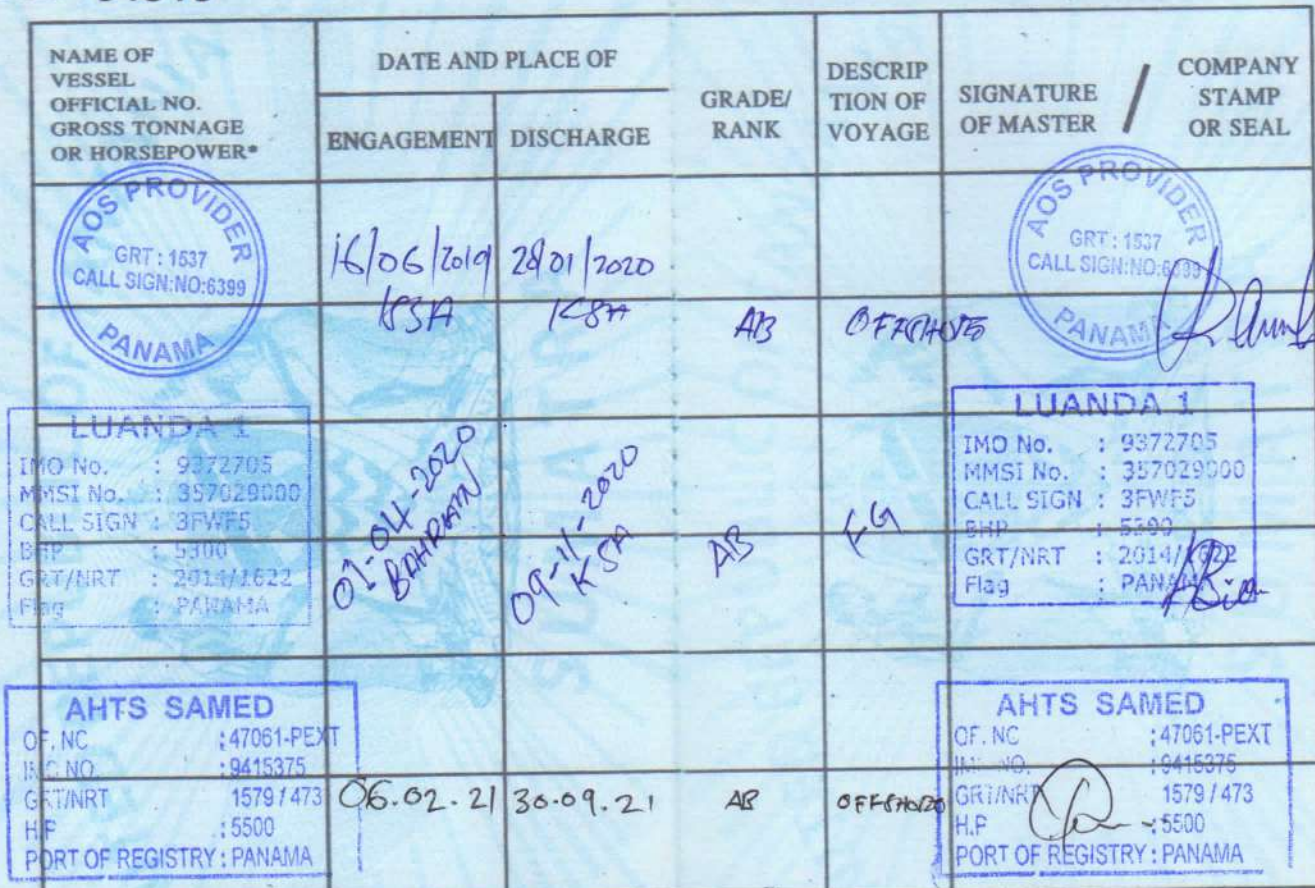 NAME OF
VESSEL
OFFICIAL NO.
GROSS TONNAGE
OR HORSEPOWER*
DATE AND PLACE OF
ENGAGEMENT
DISCHARGE
GRADE/
RANK
DESCRIP
TION OF
VOYAGE
SIGNATURE
OF MASTER
/
COMPANY
STAMP
OR SEAL
AOS PROVIDER
GRT : 1537
CALL SIGN:NO:6399
PANAMA
16/06/2019
KSA
28/01/2020
KSA
AB
OFFSHORE
AOS PROVIDER
GRT : 1537
CALL SIGN:NO:6399
PANAMA
LUANDA 1
IMO No. : 9372705
MMSI No. : 357029000
CALL SIGN : 3FWF5
BHP : 5300
GRT/NRT : 2014/1622
Flag : PANAMA
01-04-2020
BAHRAIN
09-11-2020
KSA
AB
FG
LUANDA 1
IMO No. : 9372705
MMSI No. : 357029000
CALL SIGN : 3FWF5
BHP : 5300
GRT/NRT : 2014/1622
Flag : PANAMA
AHTS SAMED
OF. NC :47061-PEXT
NO. :9415375
GRT/NRT 1579 / 473
H.P :5500
PORT OF REGISTRY : PANAMA
06.02.21
30.09.21
AB
OFFSHORE
AHTS SAMED
OF. NC :47061-PEXT
NO. :9415375
GRT/NRT 1579 / 473
H.P :5500
PORT OF REGISTRY : PANAMA